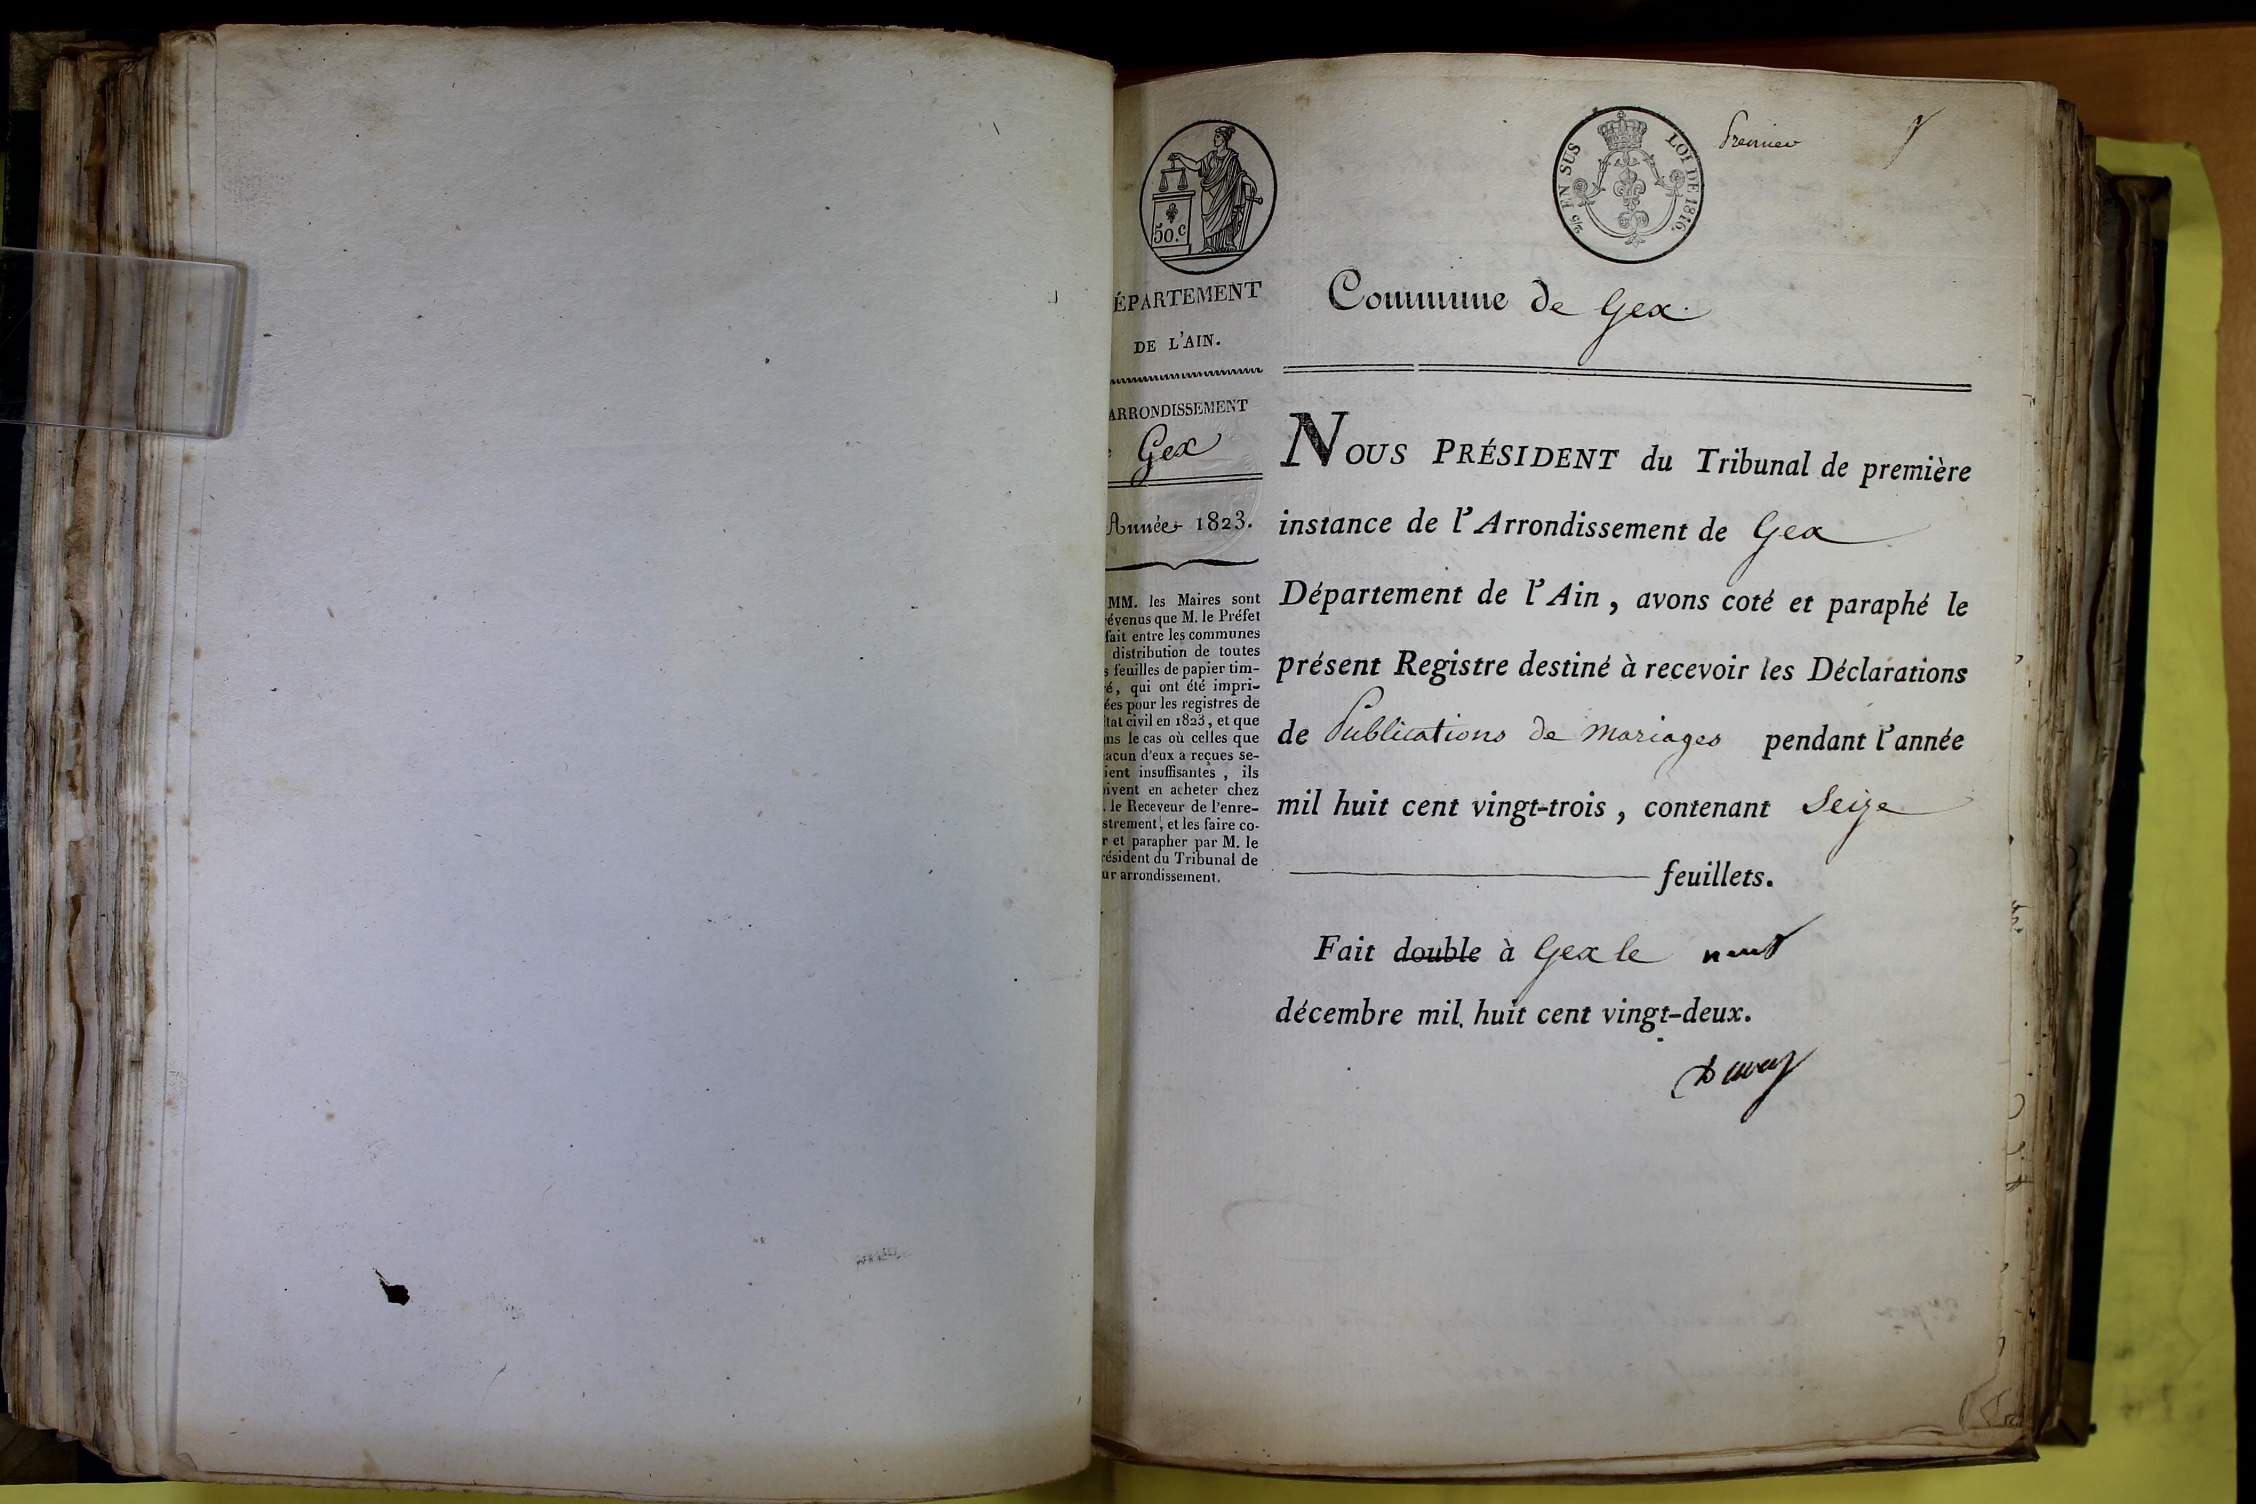 50.c
5/c EN SUS LOI DE 1816.
Premier
ÉPARTEMENT
DE L'AIN.
ARRONDISSEMENT
Gex
Année 1823.
MM. les Maires sont
révenus que M. le Préfet
fait entre les communes
distribution de toutes
s feuilles de papier tim-
ré, qui ont été impri-
ées pour les registres de
tat civil en 1823, et que
ns le cas où celles que
acun d'eux a reçues se-
ient insuffisantes, ils
oivent en acheter chez
. le Receveur de l'enre-
strement, et les faire co-
r et parapher par M. le
résident du Tribunal de
ur arrondissement.
Commune de Gex.
NOUS PRÉSIDENT du Tribunal de première
instance de l'Arrondissement de Gex
Département de l'Ain, avons coté et paraphé le
présent Registre destiné à recevoir les Déclarations
de Publications de Mariages pendant l'année
mil huit cent vingt-trois, contenant Seize
feuillets.
Fait double à Gex le neuf
décembre mil huit cent vingt-deux.